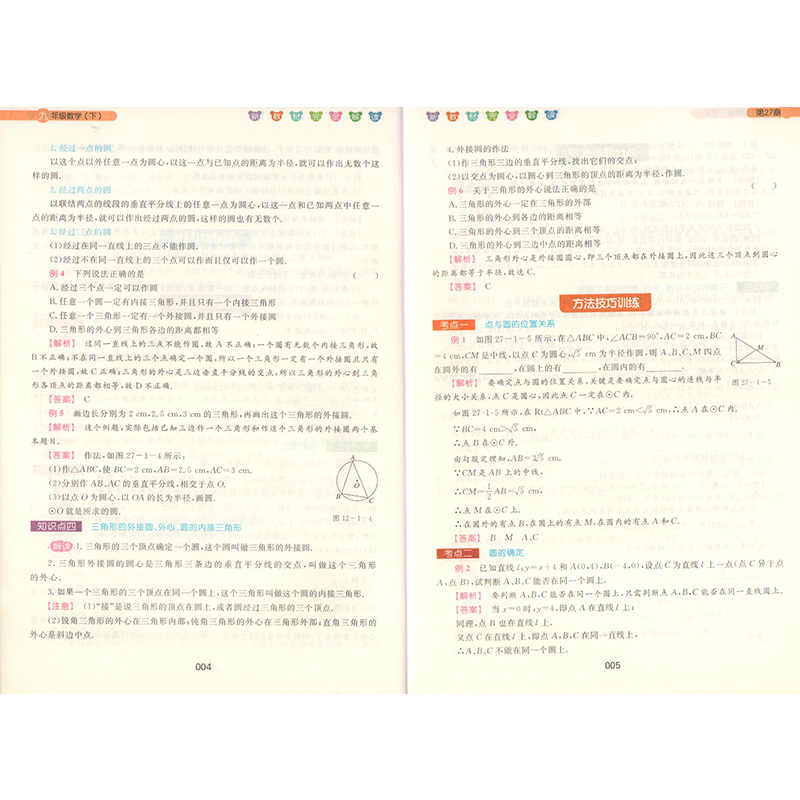 九年级数学(下)
新教材完全解读
1.经过一点的圆
以这个点以外任意一点为圆心,以这一点与已知点的距离为半径,就可以作出无数个这
样的圆.
2.经过两点的圆
以联结两点的线段的垂直平分线上的任意一点为圆心,以这一点和已知两点中任意一
点的距离为半径,就可以作出经过两点的圆,这样的圆也有无数个.
3.经过三点的圆
(1)经过在同一直线上的三点不能作圆.
(2)经过不在同一直线上的三个点可以作而且仅可以作一个圆.
例4 下列说法正确的是 ( )
A.经过三个点一定可以作圆
B.任意一个圆一定有内接三角形,并且只有一个内接三角形
C.任意一个三角形一定有一个外接圆,并且只有一个外接圆
D.三角形的外心到三角形各边的距离都相等
【解析】 过同一直线上的三点不能作圆,故A不正确;一个圆有无数个内接三角形,故
B不正确;不在同一直线上的三个点确定一个圆,所以一个三角形一定有一个外接圆且只有
一个外接圆,故C正确;三角形的外心是三边垂直平分线的交点,所以三角形的外心到三角
形各顶点的距离都相等,故D不正确.
【答案】 C
例5 画边长分别为2 cm,2.5 cm,3 cm的三角形,再画出这个三角形的外接圆.
【解析】 这个例题,实际包括已知三边作一个三角形和作这个三角形的外接圆两个基
本题目.
【答案】 作法,如图27-1-4所示:
(1)作△ABC,使BC=2 cm,AB=2.5 cm,AC=3 cm.
(2)分别作AB、AC的垂直平分线,相交于点O.
(3)以点O为圆心,以OA的长为半径,画圆.
⊙O就是所求的圆.
A
O
B C
图12-1-4
知识点四 三角形的外接圆、外心、圆的内接三角形
解读 1.三角形的三个顶点确定一个圆,这个圆叫做三角形的外接圆.
2.三角形外接圆的圆心是三角形三条边的垂直平分线的交点,叫做这个三角形
的外心.
3.如果一个三角形的三个顶点在同一个圆上,这个三角形叫做这个圆的内接三角形.
【注意】 (1)“接”是说三角形的顶点在圆上,或者圆经过三角形的三个顶点.
(2)锐角三角形的外心在三角形内部;钝角三角形的外心在三角形外部;直角三角形的
外心是斜边中点.
004
新教材完全解读
第27章
4.外接圆的作法
(1)作三角形三边的垂直平分线,找出它们的交点;
(2)以交点为圆心,以圆心到三角形的顶点的距离为半径,作圆.
例6 关于三角形的外心说法正确的是 ( )
A.三角形的外心一定在三角形的外部
B.三角形的外心到各边的距离相等
C.三角形的外心到各个三个顶点的距离相等
D.三角形的外心到三边中点的距离相等
【解析】 三角形外心是外接圆圆心,即三个顶点都在外接圆上,因此这三个顶点到圆心
的距离都等于半径,故选C.
【答案】 C
方法技巧训练
考点一 点与圆的位置关系
例1 如图27-1-5所示,在△ABC中,∠ACB=90°,AC=2 cm,BC
=4 cm,CM是中线,以点C为圆心,√5 cm为半径作圆,则A、B、C、M四点
在圆外的有______,在圆上的有______,在圆内的有______.
A
M
C B
图27-1-5
【解析】 要确定点与圆的位置关系,关键是要确定点与圆心的连线与半
径的大小关系,点C是圆心,因此点C一定在⊙C内.
如图27-1-5所示,在Rt△ABC中,∵AC=2 cm<√5 cm,∴点A在⊙C内.
∵BC=4 cm>√5 cm,
∴点B在⊙C外.
由勾股定理知,AB=2√5 cm.
∵CM是AB上的中线,
∴CM=1/2AB=√5 cm,
∴点M在⊙C上.
∴在圆外的有点B,在圆上的有点M,在圆内的有点A和C.
【答案】 B M A、C
考点二 圆的确定
例2 已知直线l:y=x+4和A(0,4),B(-4,0),设点C为直线l上一点(点C异于点
A,点B),试判断A、B、C能否在同一个圆上.
【解析】 要判断A、B、C能否在同一个圆上,只需判断点A、B、C能否在同一直线圆上.
【答案】 当x=0时,y=4,即点A在直线l上;
同理,点B也在直线l上.
又点C在直线l上,即点A、B、C在同一直线上,
∴A、B、C不能在同一个圆上.
005